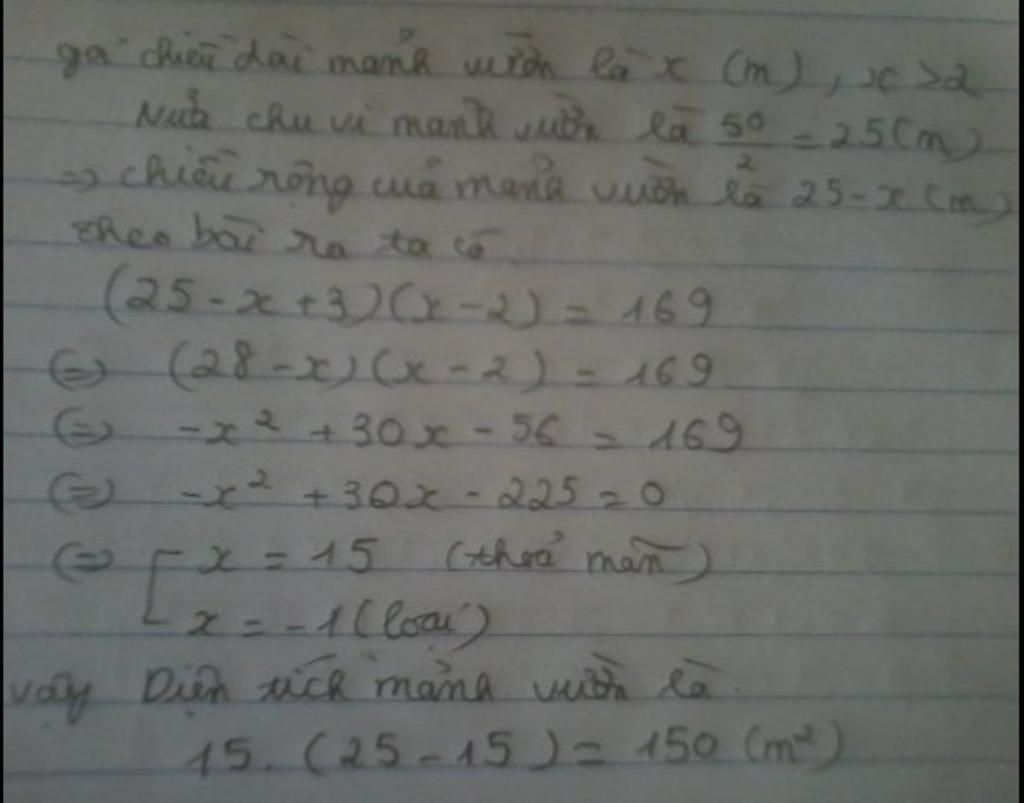 gọi chiều dài mảnh vườn là x (m), x >2
Nửa chu vi mảnh vườn là 50/2 = 25(m)
=> chiều rộng của mảnh vườn là 25-x (m)
theo bài ra ta có
(25-x+3)(x-2) = 169
(=) (28-x)(x-2) = 169
(=) -x² +30x - 56 = 169
(=) -x² +30x - 225 = 0
(=) [ x = 15 (thoả mãn)
x = -1 (loại)
vậy Diện tích mảnh vườn là
15. (25-15) = 150 (m²)